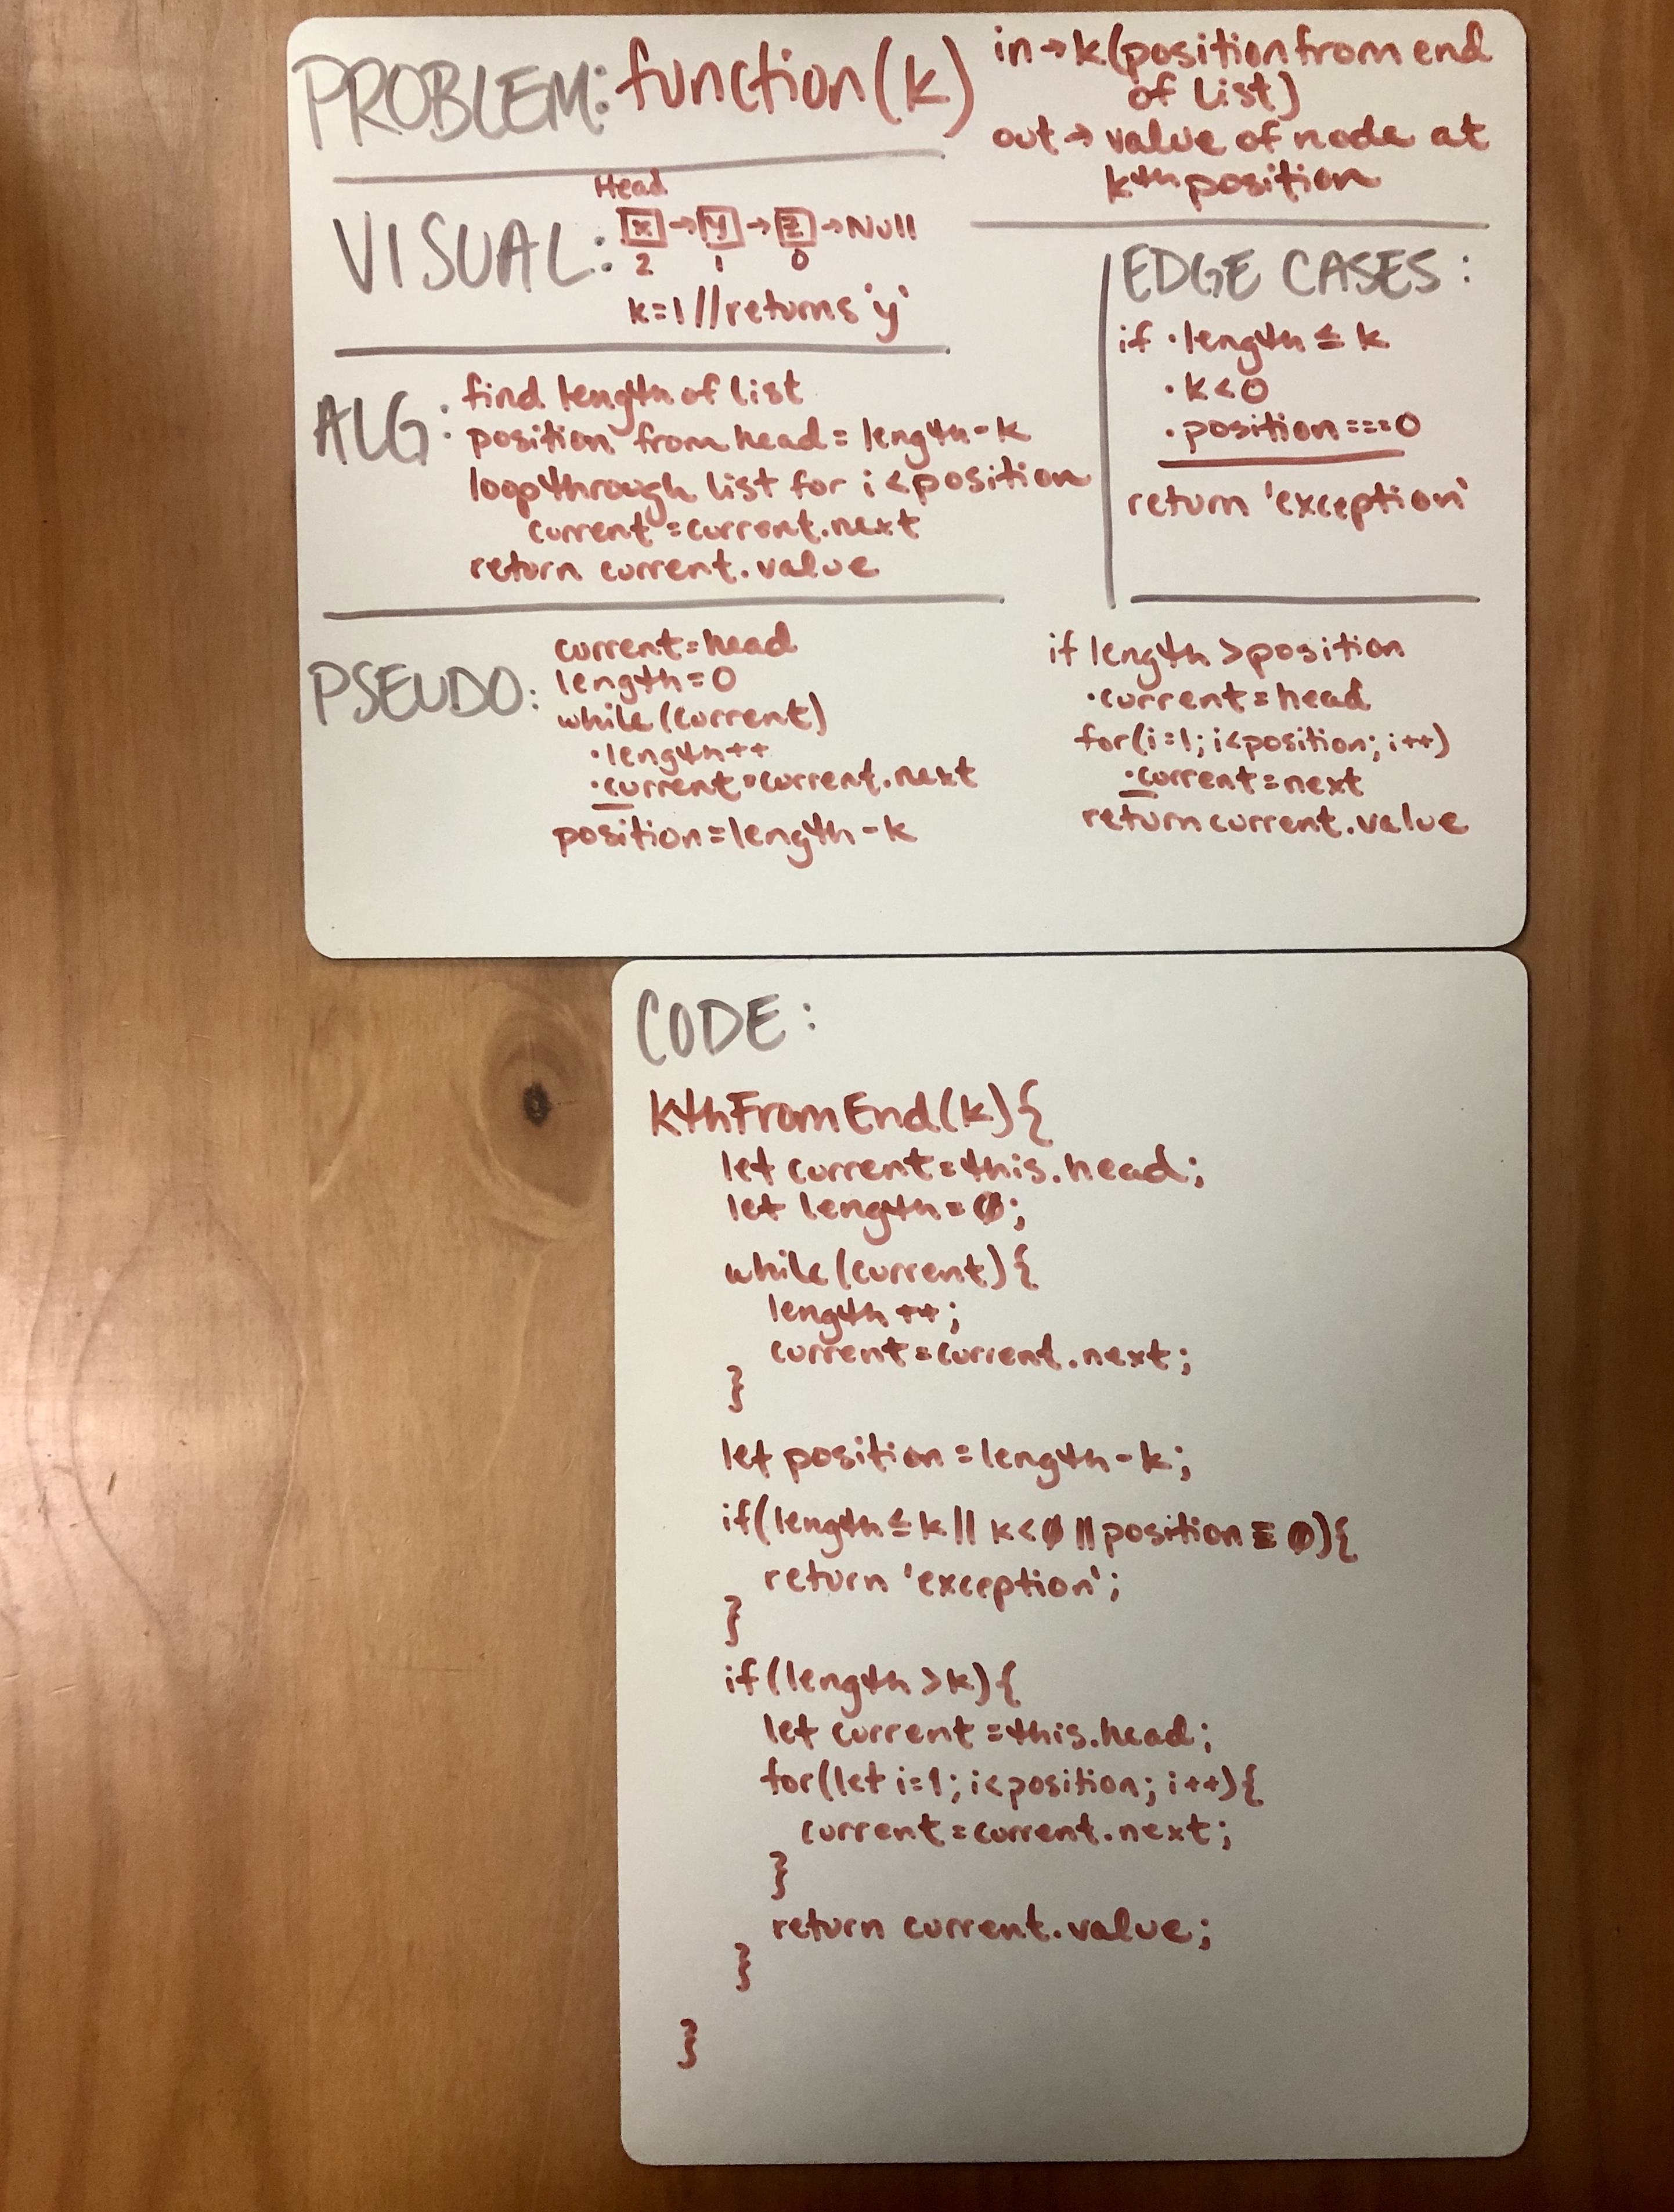 PROBLEM: function(k)
in→k(position from end
of list)
out→value of node at
kth position
VISUAL:
Head
x→y→z→Null
2 1 0
k=1//returns 'y'
EDGE CASES:
if •length≤k
•k<0
•position===0
return 'exception'
ALG: find length of list
position from head=length-k
loop through list for i<position
current=current.next
return current.value
PSEUDO:
current=head
length=0
while(current)
•length++
•current=current.next
position=length-k
if length>position
•current=head
for(i=1; i<position; i++)
•current=next
return current.value
CODE:
kthFromEnd(k){
let current=this.head;
let length=0;
while(current){
length++;
current=current.next;
}
let position=length-k;
if(length≤k||k<0||position≡0){
return 'exception';
}
if(length>k){
let current=this.head;
for(let i=1; i<position; i++){
current=current.next;
}
return current.value;
}
}